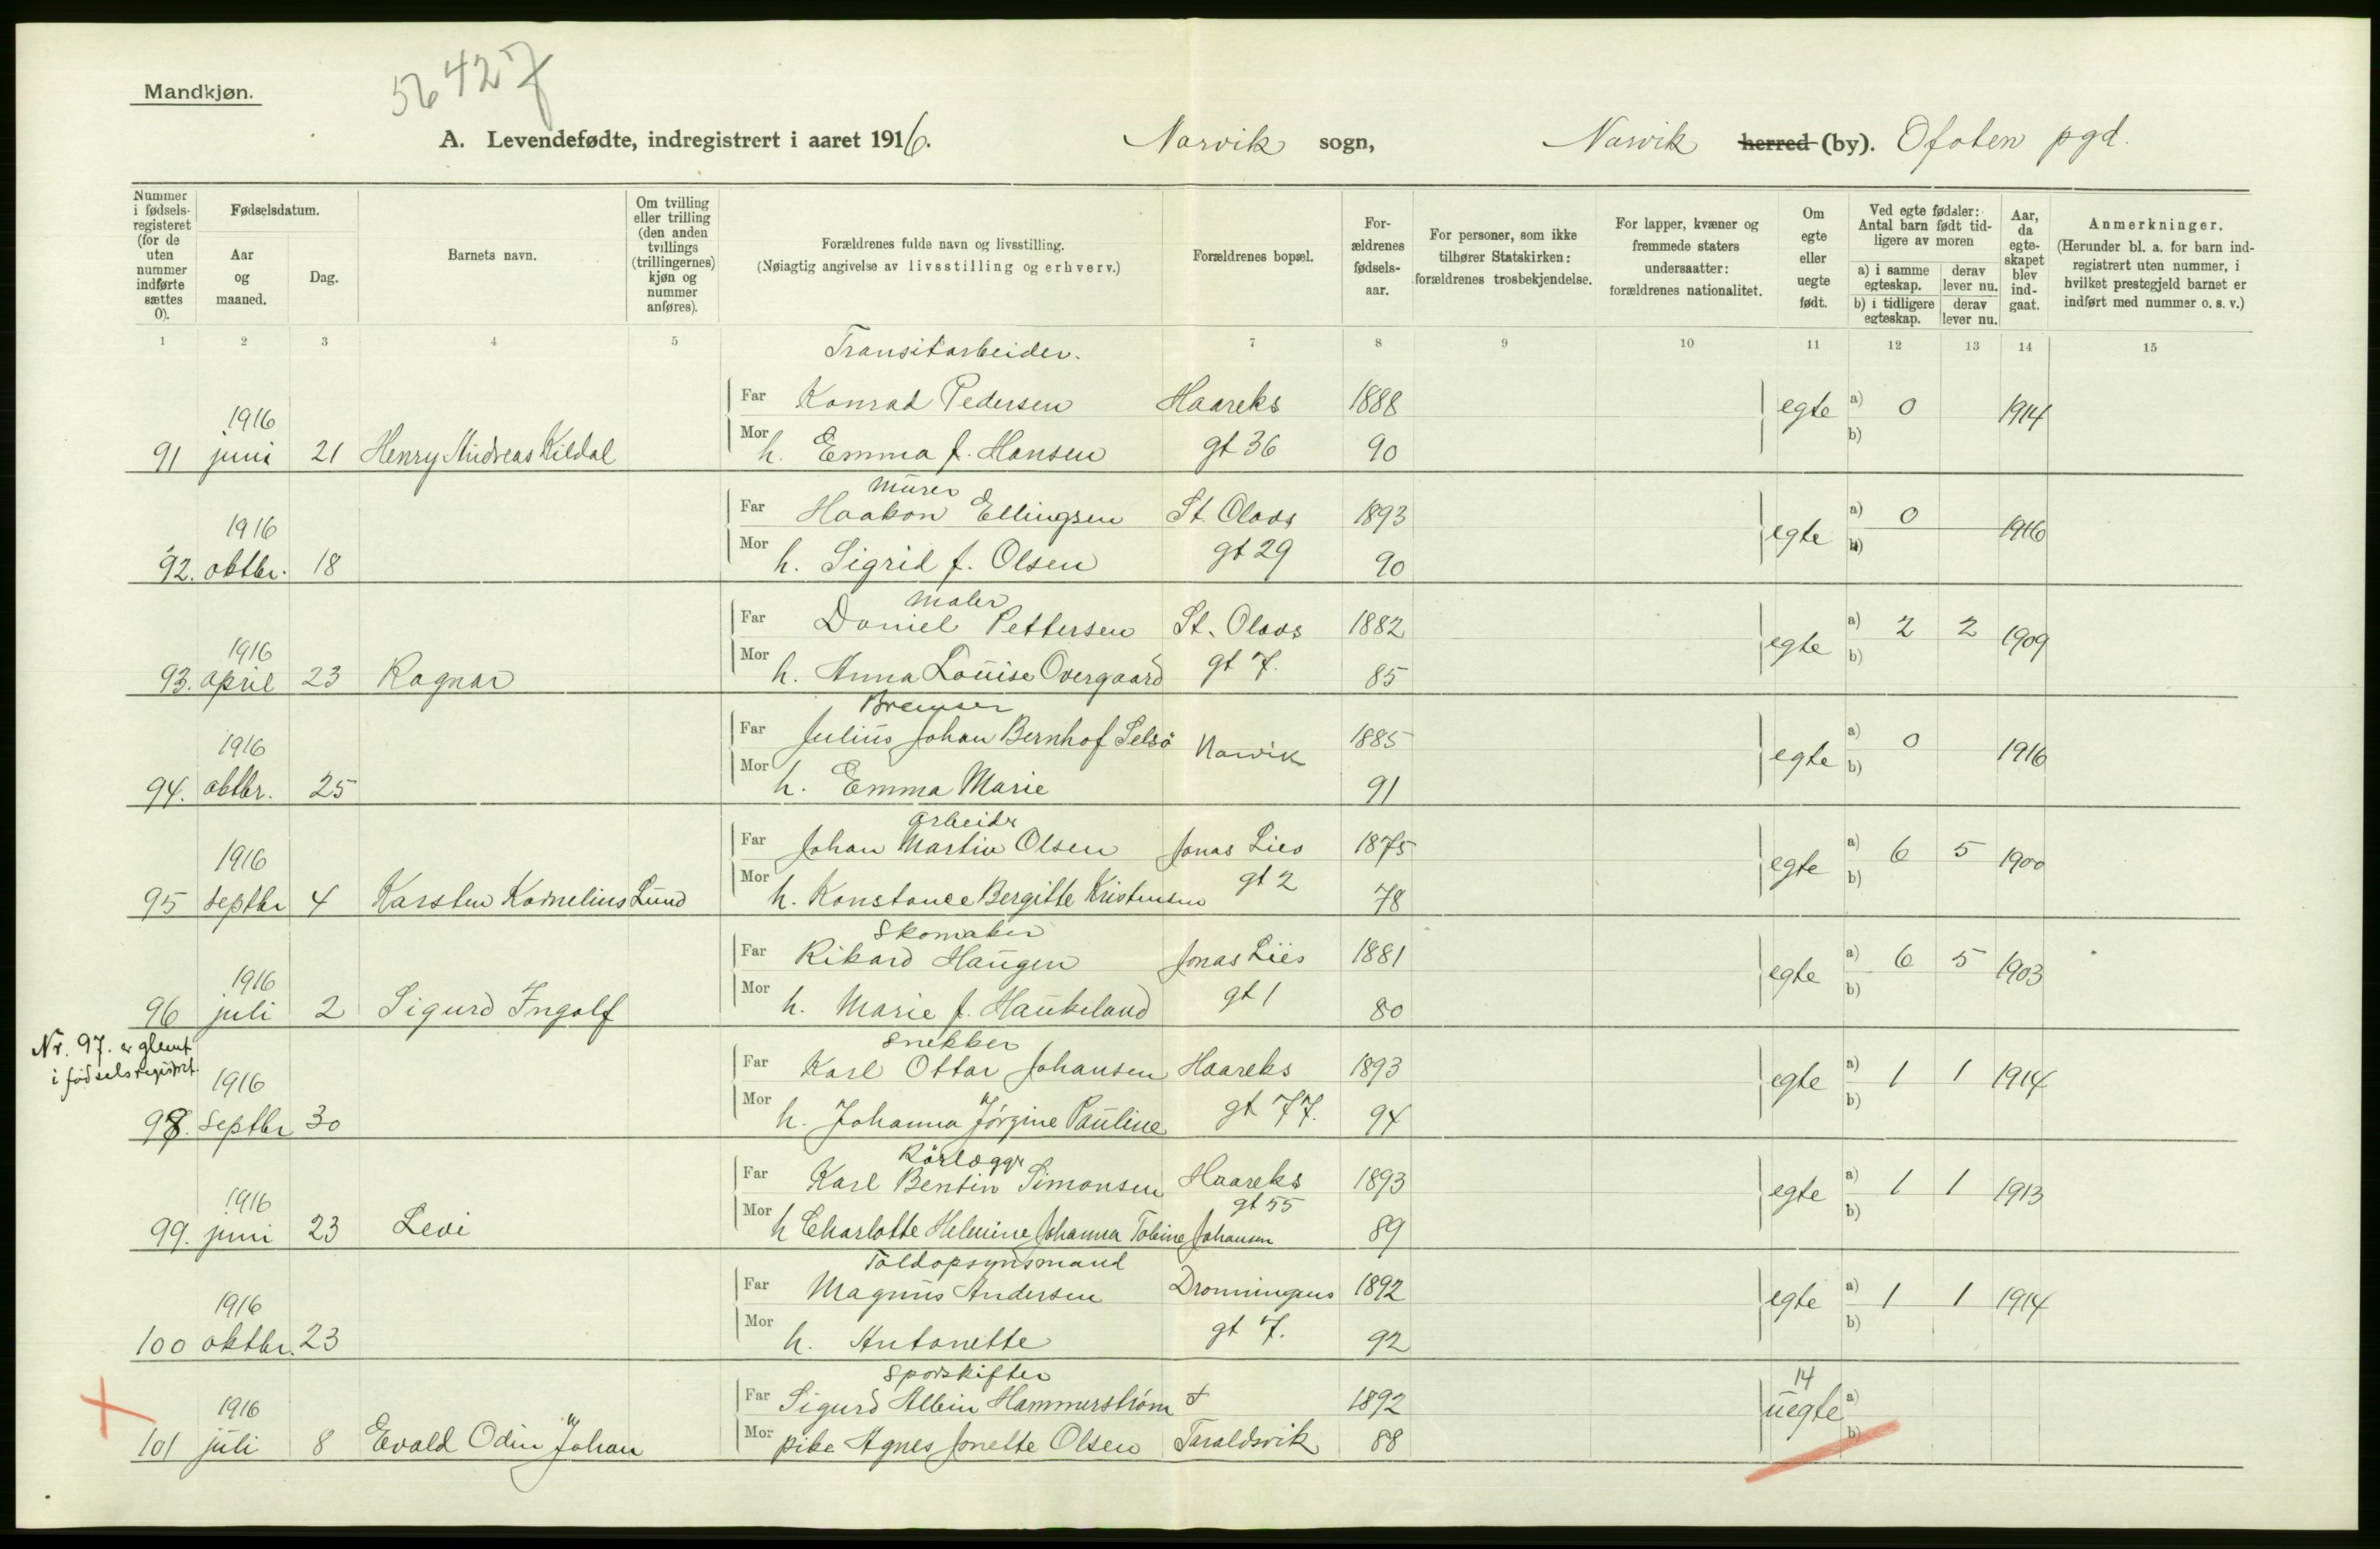 Mandkjøn.
56427
A. Levendefødte, indregistrert i aaret 1916. Narvik sogn, Narvik herred (by). Ofoten pgd.
Nummer i fødsels-registeret (for de uten nummer indførte sættes 0).
Fødselsdatum.
Aar og maaned.
Dag.
Barnets navn.
Om tvilling eller trilling (den anden tvillings (trillingernes) kjøn og nummer anføres).
Forældrenes fulde navn og livsstilling.
(Nøiagtig angivelse av livsstilling og erhverv.)
Forældrenes bopæl.
For-ældrenes fødsels-aar.
For personer, som ikke tilhører Statskirken: forældrenes trosbekjendelse.
For lapper, kvæner og fremmede staters undersaatter: forældrenes nationalitet.
Om egte eller uegte født.
Ved egte fødsler: Antal barn født tid-ligere av moren
a) i samme egteskap. derav lever nu.
b) i tidligere egteskap. derav lever nu.
Aar, da egte-skapet blev ind-gaat.
Anmerkninger.
(Herunder bl. a. for barn ind-registrert uten nummer, i hvilket prestegjeld barnet er indført med nummer o. s. v.)
1 2 3 4 5 7 8 9 10 11 12 13 14 15
Transitarbeider.
Far Konrad Pedersen Haareks 1888 egte a) 0 1914
1916
Mor h. Emma f. Hansen gt 36 90 b)
91 juni 21 Henry Andreas Kildal
Murer
Far Haakon Ellingsen St. Olavs 1893 egte a) 0 1916
1916
Mor h. Sigrid f. Olsen gt 29 90 b)
92. oktbr. 18
Maler
Far Daniel Pettersen St. Olavs 1882 egte a) 2 2 1909
1916
Mor h. Anna Louise Overgaard gt 7. 85 b)
93. april 23 Ragnar
Bremser
Far Julius Johan Bernhof Selsö Narvik 1885 egte a) 0 1916
1916
Mor h. Emma Marie 91 b)
94. oktbr. 25
Arbeider
Far Johan Martin Olsen Jonas Lies 1875 egte a) 6 5 1900
1916
Mor h. Konstance Bergitte Kristensen gt 2 78 b)
95 septbr 4 Karsten Kornelius Lund
Skomaker
Far Rikard Haugen Jonas Lies 1881 egte a) 6 5 1903
1916
Mor h. Marie f. Haukeland gt 1 80 b)
96 juli 2 Sigurd Ingolf
Nr. 97. er glemt
i födselsregistret.
Snekker
Far Karl Ottar Johansen Haareks 1893 egte a) 1 1 1914
1916
Mor h. Johanna Jörgine Pauline gt 77. 94 b)
98. septbr 30
Rörlegger
Far Karl Bentin Simonsen Haareks 1893 egte a) 1 1 1913
1916
Mor h Charlotte Helmine Johanna Tobine Johansen gt 55 89 b)
99. juni 23 Levi
Toldopsynsmand
Far Magnus Andersen Dronningens 1892 egte a) 1 1 1914
1916
Mor h. Antonette gt 7. 92 b)
100 oktbr. 23
Sporskifter
Far Sigurd Albin Hammerström 1892 14 uegte a)
1916
Mor pike Agnes Jonette Olsen Taraldsvik 88 b)
101 juli 8 Evald Odin Johan